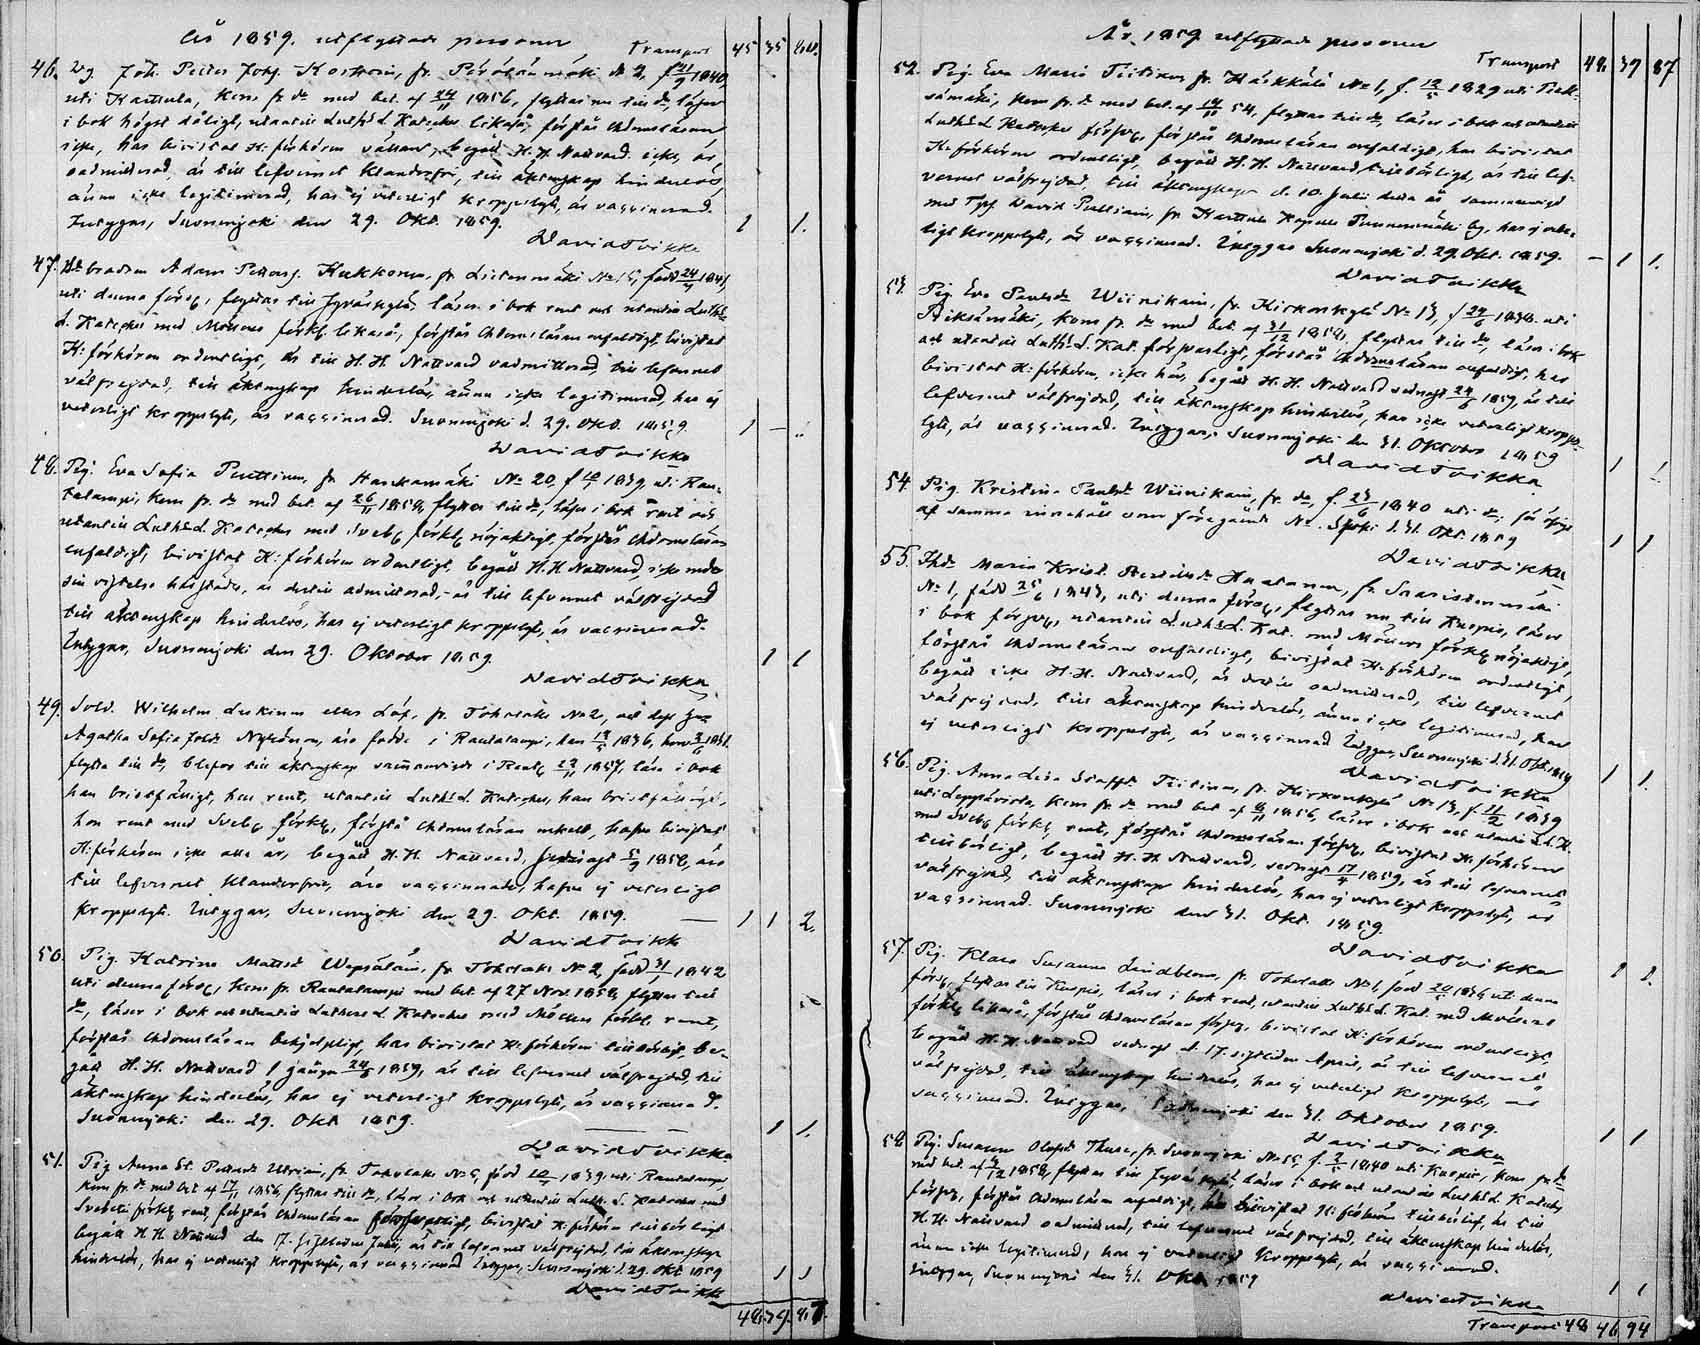 År 1859. utflyttade personer
Transport 45 35 80.
46. Dg. Joh. Petter Johs. Koskvin, fr. 2, f. 21/9 1840,
uti Karttula, kom fr. do med bet. af 24/11 1856, flyttar nu till do, läser
i bok högst dåligt, utantill Luth: L. Kateches likaså, förstår Chdomsläran
icke, har bivistat K: förhören, begått H. H. Nattvard icke, är
oadmitterad, är till lefvernet klanderfri, till äktenskap hinderlös,
ännu icke legitimerad, har ej veterligt kroppslyte, är vaccinerad.
Intygas, Suonenjoki den 29. Okt. 1859. 1 1.
David Toikka
47. brodren Adam Pettersj. Kukkonen, fr. Lintonmäki No 15, född 24/4 1841,
uti denna förs., flyttar till Jyväskylä, läser i bok rent och utantill Luth:
L. Kateches med förkl. likaså, förstår Chdomsläran enfaldigt, bivistat
K: förhören ordentligt, är till H. H. Nattvard oadmitterad, till lefvernet
välfrejdad, till äktenskap hinderlös, ännu icke legitimerad, har ej
veterligt kroppslyte, är vaccinerad. Suonenjoki d. 29. Okt. 1859. 1 –
David Toikka
48. Pig. Eva Sofia Puttinen, fr. Hankamäki No 20, f. 1839, uti Rau-
talampi, kom fr. do med bet. af 26/11 1858, flyttar till do, läser i bok rent och
utantill Luth: L. Kateches med Sveb. förkl. nöjaktigt, förstår Chdomsläran
enfaldigt, bivistat K: förhören ordentligt, begått H. H. Nattvard, icke under
sin vistelse härstädes, är dertill admitterad, är till lefvernet välfrejdad
till äktenskap hinderlös, har ej veterligt kroppslyte, är vaccinerad.
Intygas, Suonenjoki den 29. Oktober 1859. 1 1
David Toikka
49. Sold. Wilhelm Leskinen eller Löf, fr. Toholaks No 2, och dess hu.
Agatha Sofia Nykänen, äro födde i Rautalampi, han 1836, hon
flytta till do, blefvo till äktenskap sammanvigde i Rautl. 29/11 1857, läsa i bok
han bristfälligt, hon rent, utantill Luth: L. Kateches, han bristfälligt,
hon rent med Sveb. förkl., förstå Chdomsläran enkelt, hafva bivistat
K: förhören icke alla år, begått H. H. Nattvard, sednast 5/9 1858, äro
till lefvernet klanderfria, äro vaccinerade, hafva ej veterligt
kroppslyte. Intygas, Suonenjoki den 29. Okt. 1859. — 1 1 2.
David Toikka
50. Pig. Katrina Mattsdr Wepsäläin, fr. Toholaks No 2, född 31/1 1842
uti denna förs., kom fr. Rautalampi med bet. af 27 Nov. 1858, flyttar till
do, läser i bok och utantill Luthers L. Kateches med förkl. rent,
förstår Chdomsläran behjelpligt, har bivistat K: förhören, be-
gått H. H. Nattvard 1 gång 24/6 1859, är till lefvernet välfrejdad, till
äktenskap hinderlös, har ej veterligt kroppslyte, är vaccinerad.
Suonenjoki den 29. Okt 1859. 1 1.
David Toikka
51. Pig. Anna St. Pettersdr, fr. Toholaks No 5, född 1839, uti Rautalampi,
kom fr. do med bet af 17/11 1856, flyttar till do, läser i bok och utantill Luth. L. Kateches med
Svebelii förkl. rent, förstår Chdomsläran försvarligt, bivistat K: förhören tillbörligt
begått H. H. Nattvard den 17. sistl. Juli, är till lefvernet välfrejdad, till äktenskap
hinderlös, har ej veterligt kroppslyte, är vaccinerad. Intygas, Suonenjoki d. 29. Okt 1859 1 1
David Toikka
48. 39. 87.
År 1859 utflyttade personer
Transport 48. 39 87
52. Pig. Eva Maria Tiitinen, fr. Härkkälä No 1, f. 12/5 1829 uti Piek-
sämäki, kom fr. do med bet. af 14/11 54, flyttar till do, läser i bok och utantill
Luth: L. Kateches försv., förstår Chdomsläran enfaldigt, har bivistat
K: förhören ordentligt, begått H. H. Nattvard tillbörligt, är till lef-
vernet välfrejdad, till äktenskap d. 10 Juli detta år sammanvigd
med David, fr. Karttula Kapell by, har ej veter-
ligt kroppslyte, är vaccinerad. Intygas Suonenjoki d. 29. Okt. 1859. – 1 1.
David Toikka
53. Pig. Eva Paulsdr Wiinikain, fr. Kirkonkylä No 13, f. 29/6 1838. uti
Pieksämäki, kom fr. do med bet. af 31/12 1858, flyttar till do, läser i bok
och utantill Luth: L. Kat. försvarligt, förstår Chdomsläran enfaldigt, har
bivistat K: förhören, icke här, begått H. H. Nattvard sednast 24/6 1859, är till
lefvernet välfrejdad, till äktenskap hinderlös, har icke veterligt kropps-
lyte, är vaccinerad. Intygas, Suonenjoki den 31. Oktober 1859 1 1
David Toikka
54. Pig. Kristina Paulsdr Wiinikain, fr. do, f. 1840 uti do,
af samma innehåll som föregående No. Sjoki d. 31. Okt. 1859 1 1
David Toikka
55. Maria Krist. Haatanen, fr. Saaristonmäki
No 1, född 25/6 1843, uti denna förs., flyttar nu till Kuopio, läser
i bok försv., utantill Luth: L. Kat. med förkl. nöjaktigt,
förstår Chdomsläran enfaldigt, bivistat K: förhören ordentligt,
begått icke H. H. Nattvard, är dertill oadmitterad, till lefvernet
välfrejdad, till äktenskap hinderlös, ännu icke legitimerad, har
ej veterligt kroppslyte, är vaccinerad. Intygas, Suonenjoki d. 31. Okt. 1859 1 1.
David Toikka
56. Pig. Anna Lisa Staffsdr Tiitinen, fr. Kirkonkylä No 13, f. 11/2 1839
uti Leppävirta, kom fr. do med bet. af 1856, läser i bok och utantill L. K.
med Sveb. förkl. rent, förstår Chdomsläran försv., bivistat K: förhören
tillbörligt, begått H. H. Nattvard, sednast 17/4 1859, är till lefvernet
välfrejdad, till äktenskap hinderlös, har ej veterligt kroppslyte, är
vaccinerad. Suonenjoki den 31. Okt. 1859.
David Toikka 1 1.
57. Pig. Klara Susanna Lindblom, fr. Toholaks No 1, född uti denna
förs., flyttar till Kuopio, läser i bok rent, utantill Luth: L. Kat. med
förkl. likaså, förstår Chdomsläran försv., bivistat K: förhören ordentligt,
begått H. H. Nattvard sednast d. 17. sistlidne April, är till lefvernet
välfrejdad, till äktenskap hinderlös, har ej veterligt kroppslyte, är
vaccinerad. Intygas, Suonenjoki den 31. Oktober 1859. 1 1
David Toikka
58. Pig. Susanna Olofsdr, fr. Suonenjoki No 15, f. 1840 uti Kuopio, kom fr. do
med bet. af 1858, flyttar till Jyväskylä, läser i bok och utantill Luth: L. Katech.
försv., förstår Chdomsläran enfaldigt, bivistat K: förhören tillbörligt, är till
H. H. Nattvard oadmitterad, till lefvernet välfrejdad, till äktenskap hinderlös,
ännu icke legitimerad, har ej veterligt kroppslyte, är vaccinerad.
Intygas, Suonenjoki den 31. Okt 1859 1 1
David Toikka
Transport 48 46 94